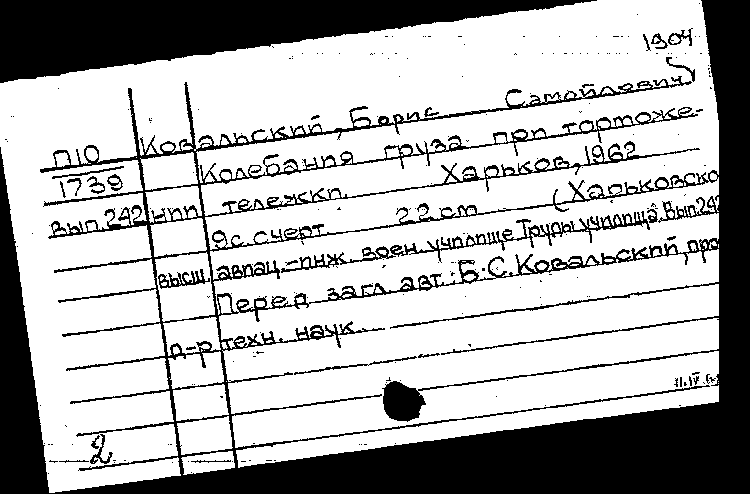 1904
П10 Ковальский, Борис Самойлович
1739 Колебания груза при торможе-
Вып.242 нии тележки. Харьков, 1962
9с. с черт. 22 cm (Харьковско
высш. авиац.-инж. воен. училище. Труды училища. Вып. 242
Перед загл. авт.: Б.С. Ковальский, про
д-р техн. наук.
2